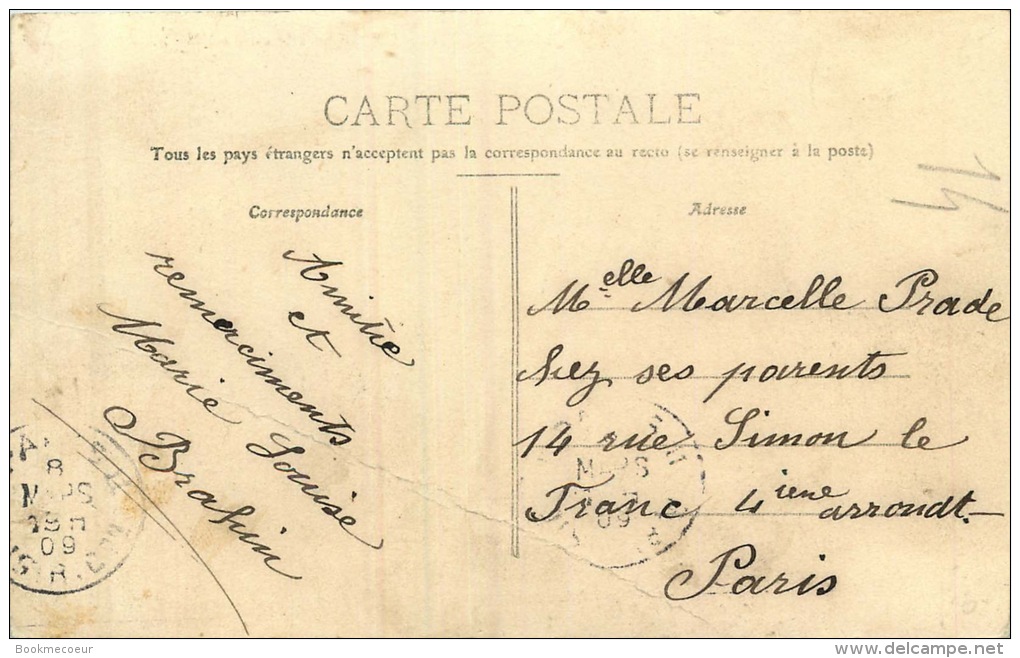 CARTE POSTALE
Tous les pays étrangers n'acceptent pas la correspondance au recto (se renseigner à la poste)
Correspondance
Adresse
14
Amitié
et
remerciments
Marie Louise
Brahin
Melle Marcelle Prade
chez ses parents
14 rue Simon le
Franc 4ieme arrondt.
Paris
8
MARS
09
MARS
09
Bookmecoeur
www.delcampe.net